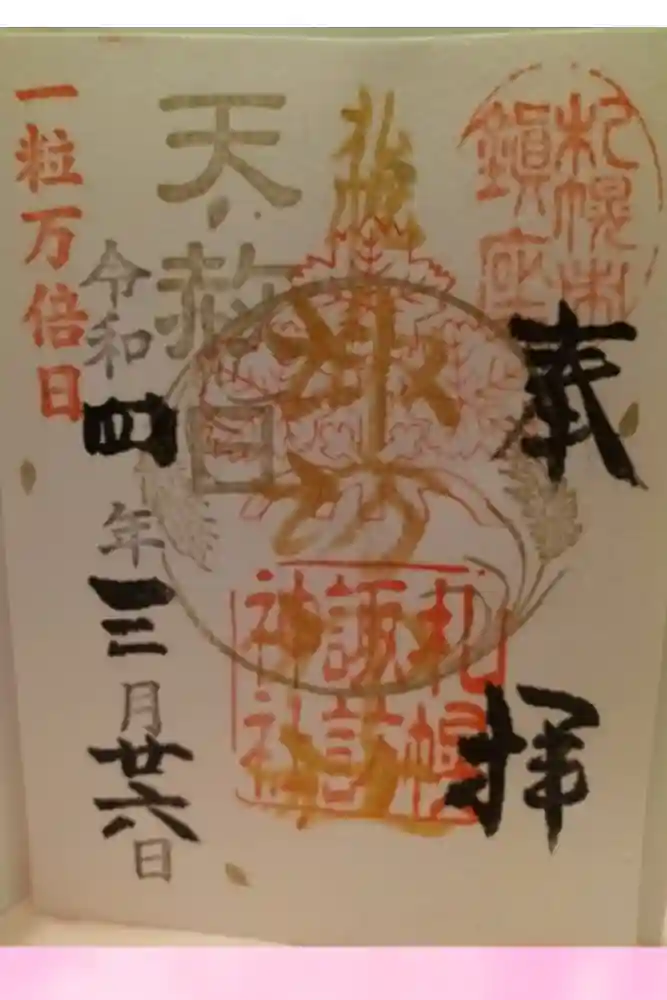 奉拝
札幌市
鎮座
札幌
諏訪
札幌
諏訪
神社
天赦日
令和四年三月廿六日
一粒万倍日